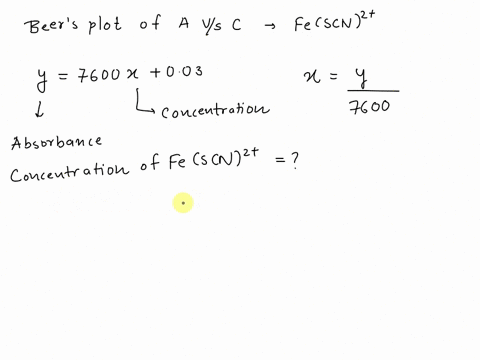 Beer's plot of A V/s C → Fe(SCN)²⁺
y = 7600 x + 0.03
x = y / 7600
↓
↳ Concentration
Absorbance
Concentration of Fe(SCN)²⁺ = ?